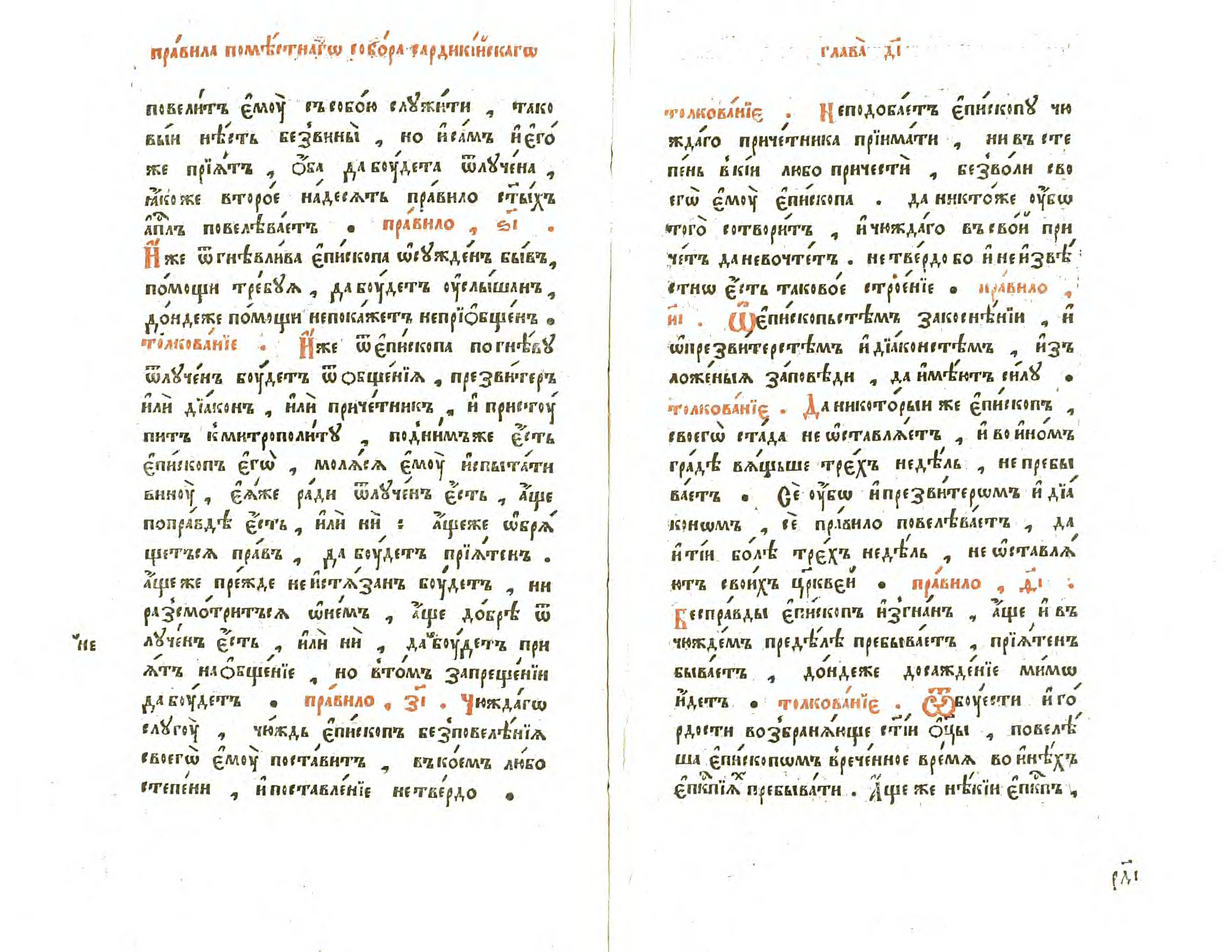 пра́вила помѣ́стнагѡ собо́ра сардикі́йскагѡ
повели́тъ є҆моу̀ съсобо́ю слꙋжи́ти , тако
вы́и нѣ́сть без̾вины̀ , но и҆са́мъ и҆є҆го́
же прїѧ́тъ , ѻ҆́ба да боу́дета ѿлꙋче́на ,
ꙗ҆́коже второ́е на́десѧть пра́вило ст҃ы́хъ
а҆п҃лъ повелѣва́етъ . пра́вило , ѕ҃і .
И҆́же ѿгнѣвли́ва є҆пи́скопа ѡ҆сꙋжде́нъ бы́въ,
по́мощи тре́бꙋѧ , да боу́детъ оу҆слы́шанъ ,
до́ндеже по́мощи непока́жетъ непрїѻбще́нъ .
толкова́нїе . И҆́же ѿє҆пи́скопа по гнѣ́вꙋ
ѿлꙋче́нъ боу́детъ ѿ ѻбще́нїѧ , презви́теръ
и҆лѝ дїа́конъ , и҆лѝ приче́тникъ , и҆ пристоу́
питъ к̾митрополи́тꙋ , по́днимъже є҆́сть
є҆пи́скопъ є҆гѡ̀ , молѧ́сѧ є҆моу̀ и҆спыта́ти
виноу̀ , є҆ѧ́же ра́ди ѿлꙋче́нъ є҆́сть , а҆́ще
попра́вдѣ є҆́сть , и҆лѝ нѝ : а҆́щеже ѡ҆брѧ́
щетъсѧ пра́въ , да боу́детъ прїѧ́тенъ .
а҆́ще же пре́жде не и҆стѧ́занъ боу́детъ , ни
раз̾смо́тритъсѧ ѡ҆не́мъ , а҆́ще до́брѣ ѿ
лꙋче́нъ є҆́сть , и҆лѝ нѝ , да боу́детъ при
ѧ́тъ наѻбще́нїе , но в̾то́мъ запреще́нїи
да боу́детъ . пра́вило , з҃і . Чю́ждагѡ
слꙋгоу̀ , чю́ждь є҆пи́скопъ без̾повелѣ́нїѧ
своегѡ̀ є҆моу̀ поста́витъ , въко́емъ лю́бо
степе́ни , и҆поставле́нїе нетве́рдо .
не
глава̀ д҃і
толкова́нїе . Неподоба́етъ є҆пи́скопꙋ чю
жда́го приче́тника прїима́ти , ни въ сте
пе́нь в̾кі́и лю́бо причестѝ , без̾во́ли сво
егѡ̀ є҆моу̀ є҆пи́скопа . да никто́же оу҆́бѡ
того̀ сотвори́тъ , и҆чю́ждаго въ сво́й при
че́тъ да невочте́тъ . не тве́рдо бо и҆ не и҆звѣ́
стнѡ є҆́сть таково́е строе́нїе . пра́вило ,
и҃і . Ѡ҆є҆пи́скопьстѣмъ закоснѣ́нїи , и҆
ѡ҆презви́терстѣмъ и҆ дїа́констѣмъ , и҆зъ
ложе́ныѧ за́повѣди , да и҆мѣ́ютъ си́лꙋ .
толкова́нїе . Да никото́рыи же є҆пи́скопъ ,
своегѡ̀ ста́да не ѡ҆ставлѧ́етъ , и҆ во и҆но́мъ
гра́дѣ вѧ́щьше тре́хъ недѣ́ль , не пребы
ва́етъ . Се́ оу҆́бѡ и҆презви́терѡмъ и҆ дїа́
конѡмъ , сѐ пра́вило повелѣва́етъ , да
и҆ ті́и бо́лѣ тре́хъ недѣ́ль , не ѡ҆ставлѧ́
ютъ свои́хъ цр҃кве́й . пра́вило , д҃і .
Бесправды є҆пи́скопъ и҆згна́нъ , а҆́ще и҆ въ
чю́ждемъ предѣ́лѣ пребыва́етъ , прїѧ́тенъ
быва́етъ , до́ндеже досажде́нїе мимѡ
и҆́детъ . толкова́нїе . Ѿбоу́ести и҆ го́
рдости возбранѧ́юще ст҃і́и ѻ҆ц҃ы̀ , повелѣ́
ша є҆пи́скопѡмъ в̾рече́нное вре́мѧ во и҆нѣ́хъ
є҆пк҃пїѧ́х пребыва́ти . А҆́ще же нѣ́кїи є҆пк҃пъ ,
рд҃і